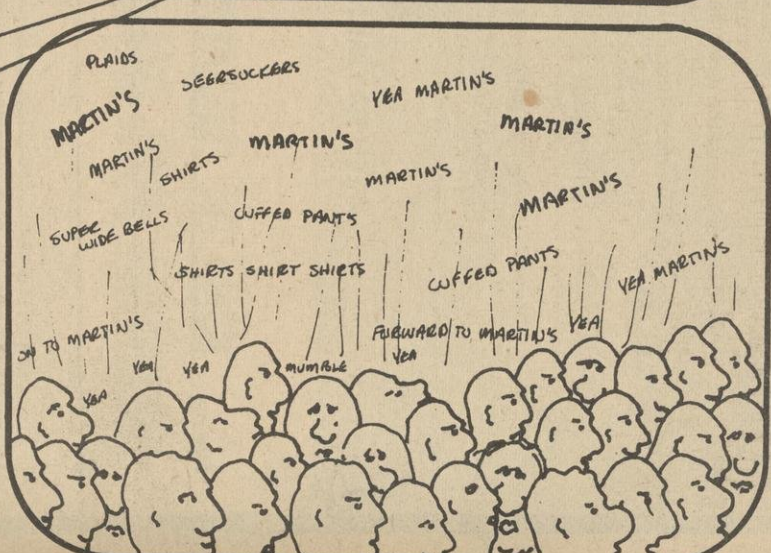 PLAIDS
SEERSUCKERS
YEA MARTIN'S
MARTIN'S
MARTIN'S
MARTIN'S
MARTIN'S
SHIRTS
MARTIN'S
MARTIN'S
SUPER
WIDE BELLS
CUFFED PANT'S
SHIRTS SHIRT SHIRTS
CUFFED PANTS
YEA MARTIN'S
ON TO MARTIN'S
FORWARD TO MARTIN'S
YEA
YEA
YEA
MUMBLE
YEA
YEA